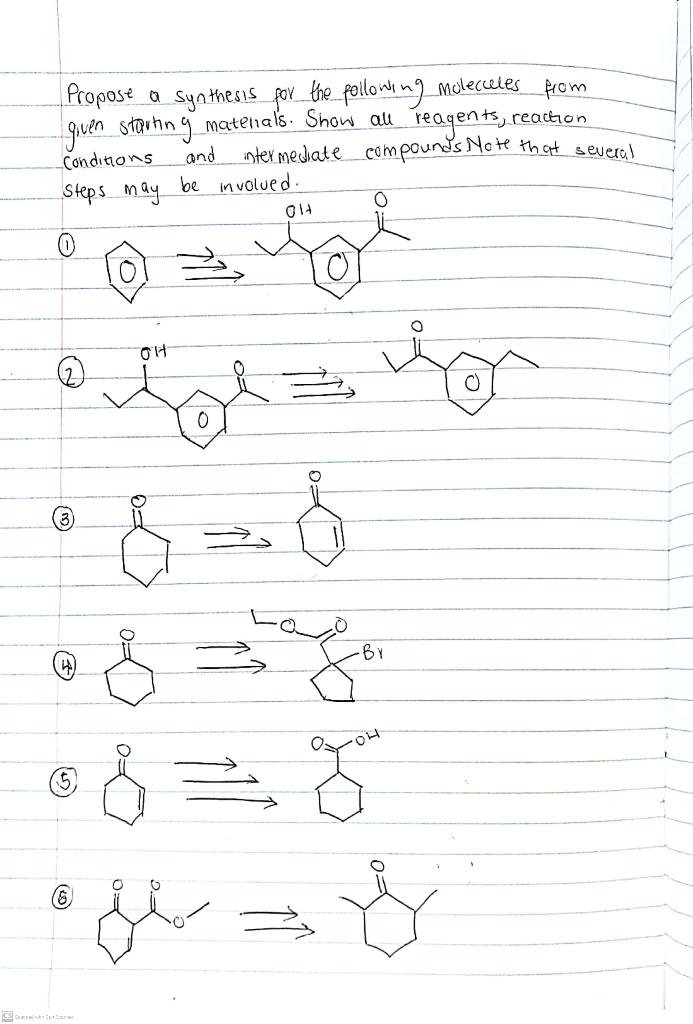 Propose a synthesis for the following molecules from
given starting materials. Show all reagents, reaction
conditions and intermediate compounds Note that several
steps may be involved.
OH O
①
O
② OH O
③ O O
④ O O O
Br
⑤ O O OH
⑥ O O O O
CS Scanned with CamScanner